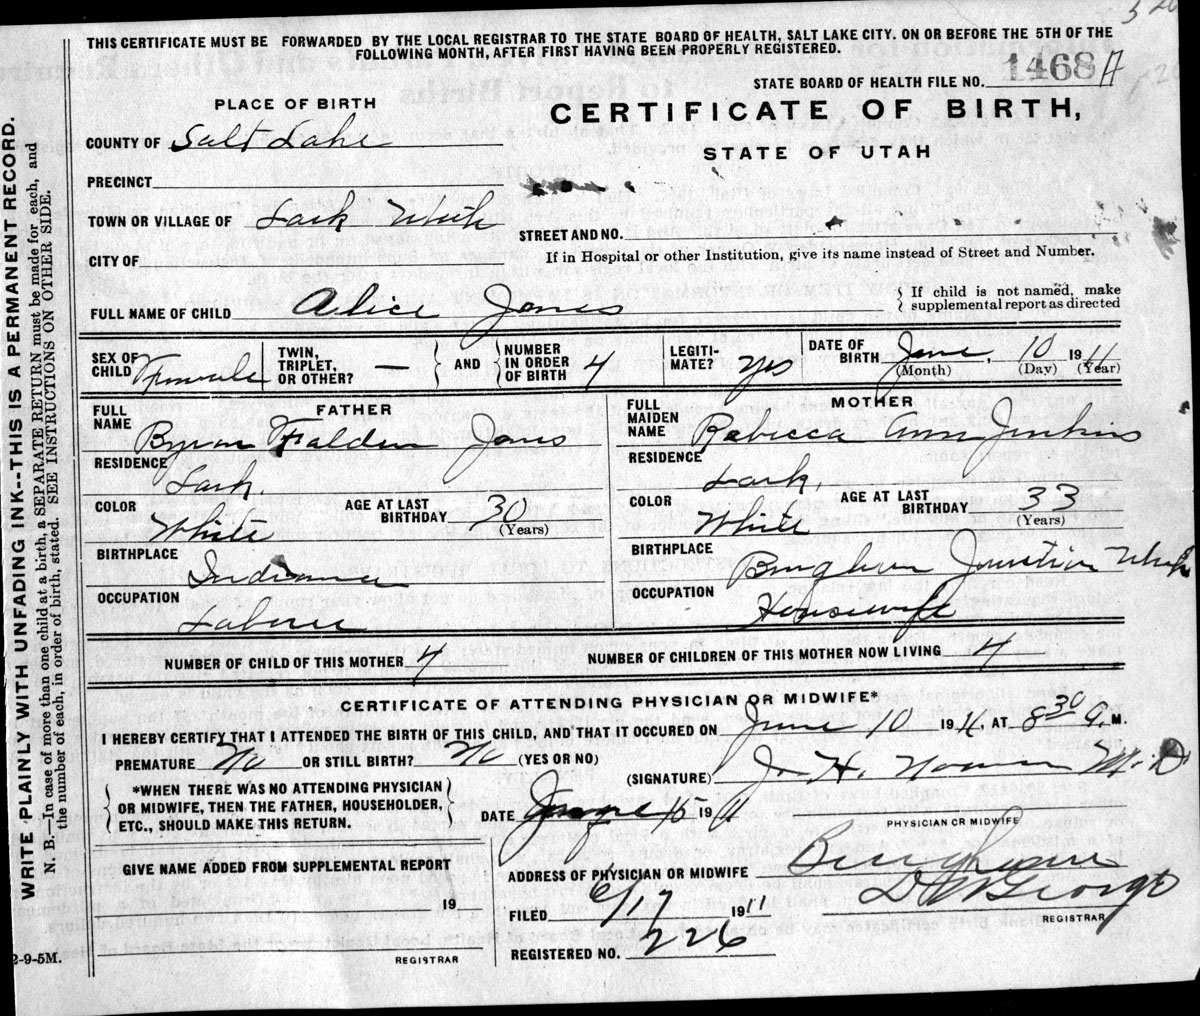 THIS CERTIFICATE MUST BE FORWARDED BY THE LOCAL REGISTRAR TO THE STATE BOARD OF HEALTH, SALT LAKE CITY. ON OR BEFORE THE 5TH OF THE
FOLLOWING MONTH, AFTER FIRST HAVING BEEN PROPERLY REGISTERED.
STATE BOARD OF HEALTH FILE NO. 1468
PLACE OF BIRTH
CERTIFICATE OF BIRTH,
STATE OF UTAH
COUNTY OF Salt Lake
PRECINCT
TOWN OR VILLAGE OF Lark Utah
STREET AND NO.
CITY OF
If in Hospital or other Institution, give its name instead of Street and Number.
FULL NAME OF CHILD Alice Jones
{ If child is not named, make
supplemental report as directed
SEX OF CHILD Female
TWIN, TRIPLET, OR OTHER? —
AND
NUMBER IN ORDER OF BIRTH 4
LEGITIMATE? yes
DATE OF BIRTH June, 10 1911
(Month) (Day) (Year)
FATHER
FULL NAME Byron Jones
RESIDENCE Lark.
COLOR White
AGE AT LAST BIRTHDAY 30
(Years)
BIRTHPLACE Indiana
OCCUPATION Laborer
MOTHER
FULL MAIDEN NAME Rebicca Ann Jenkins
RESIDENCE Lark.
COLOR White
AGE AT LAST BIRTHDAY 33
(Years)
BIRTHPLACE Bingham Junction Utah
OCCUPATION Housewife
NUMBER OF CHILD OF THIS MOTHER 4
NUMBER OF CHILDREN OF THIS MOTHER NOW LIVING 4
CERTIFICATE OF ATTENDING PHYSICIAN OR MIDWIFE*
I HEREBY CERTIFY THAT I ATTENDED THE BIRTH OF THIS CHILD, AND THAT IT OCCURED ON June 10 1911, AT 8 30 A. M.
PREMATURE No OR STILL BIRTH? No (YES OR NO)
*WHEN THERE WAS NO ATTENDING PHYSICIAN
OR MIDWIFE, THEN THE FATHER, HOUSEHOLDER,
ETC., SHOULD MAKE THIS RETURN.
(SIGNATURE) J. H. M.D
PHYSICIAN OR MIDWIFE
DATE June 15 1911
ADDRESS OF PHYSICIAN OR MIDWIFE Bingham
GIVE NAME ADDED FROM SUPPLEMENTAL REPORT
19
REGISTRAR
FILED 6/17 1911
George
REGISTRAR
REGISTERED NO. 226
2-9-5M.
WRITE PLAINLY WITH UNFADING INK--THIS IS A PERMANENT RECORD.
N. B.—In case of more than one child at a birth, a SEPARATE RETURN must be made for each, and
the number of each, in order of birth, stated. SEE INSTRUCTIONS ON OTHER SIDE.